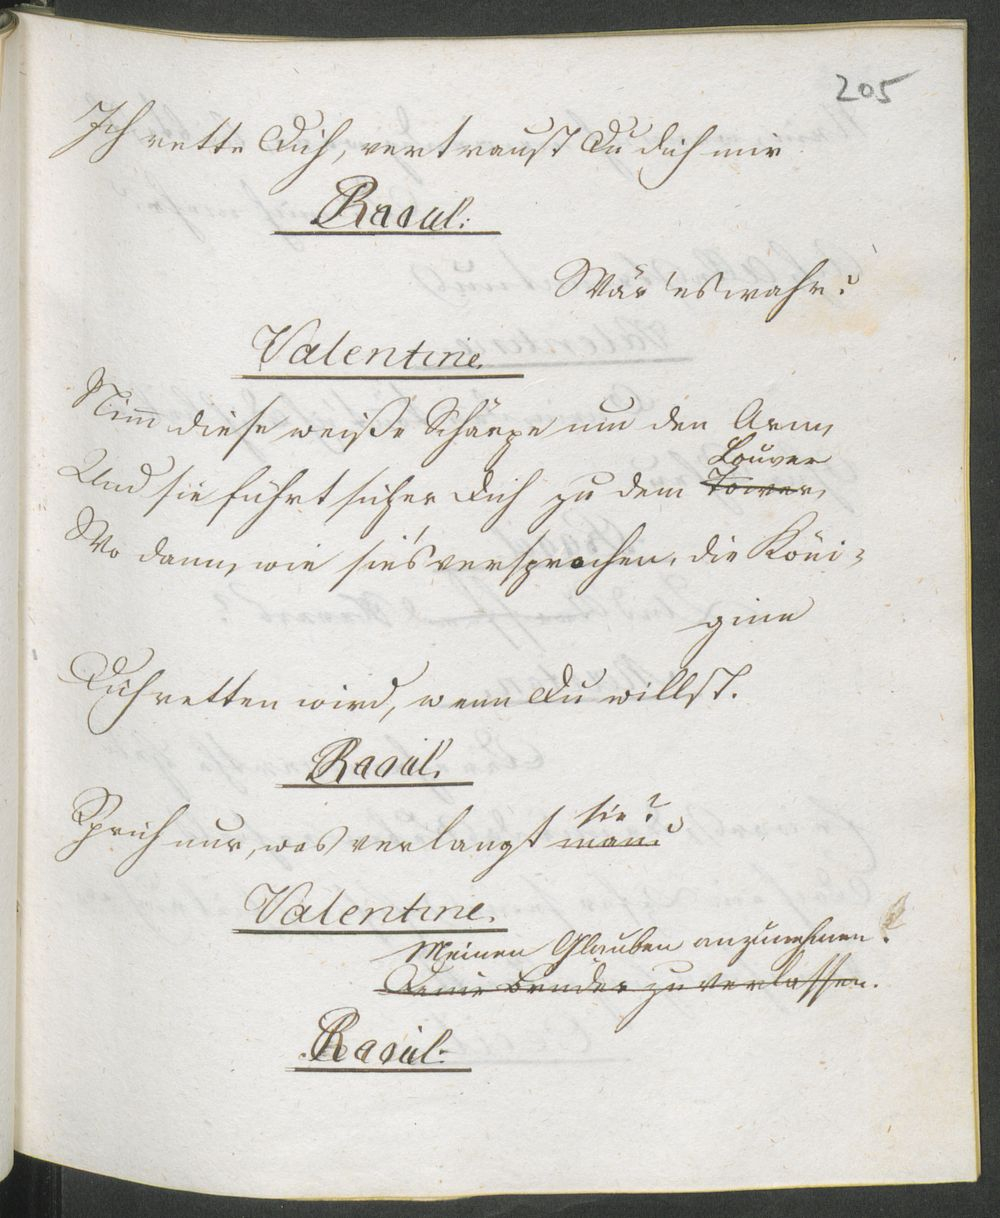 205
Ich rette Dich, vertraust Du dich mir
Raoul:
Wär' es wahr?
Valentine.
Nim̄ diese weiße Schärpe um den Arm,
Louver
Und sie führt sicher Dich zu dem Tower,
Wo dann, wie sie's versprochen, die Köni-
ginn
Dich retten wird, wenn Du willst.
Raoul.
sie?
Sprich nur, was verlangt man?
Valentine.
Meinen Glauben anzunehmen.
Deine Brüder zu verlassen.
Raoul: